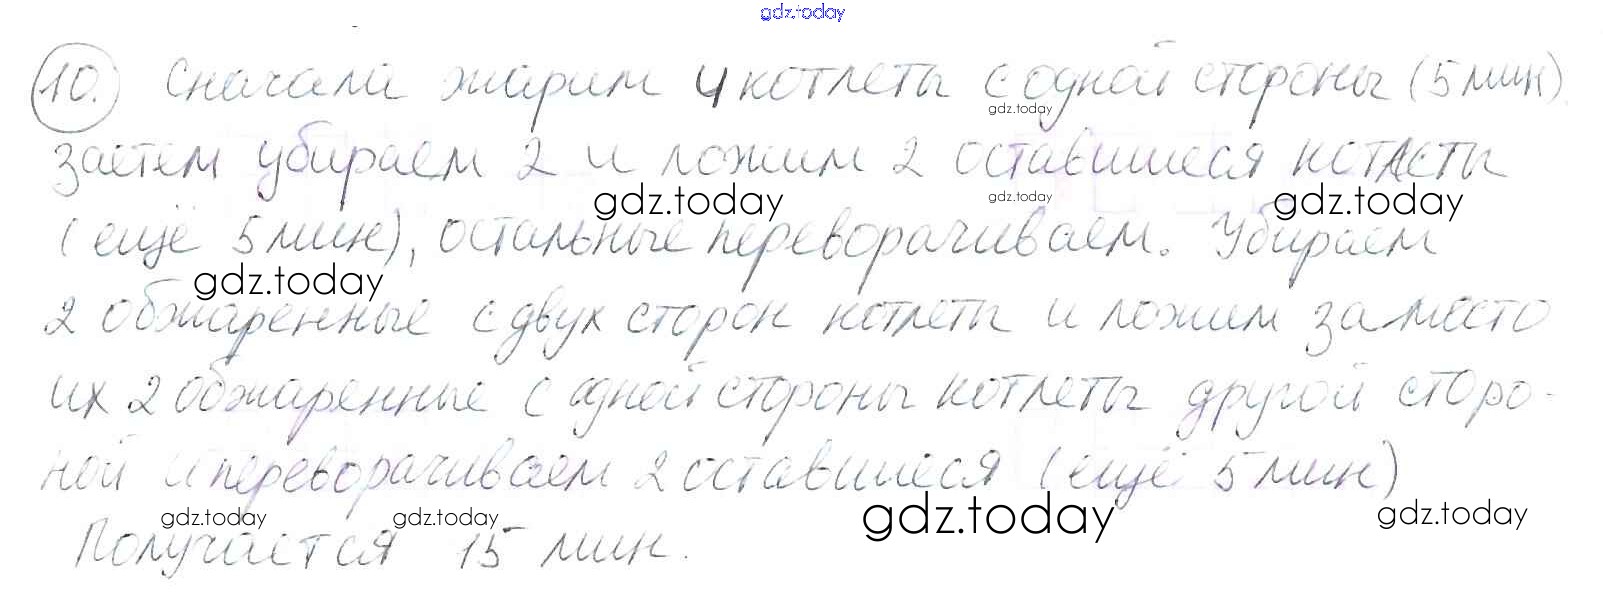 gdz.today
10. Сначала жарим 4 котлеты с одной стороны (5 мин)
gdz.today
заетем убираем 2 и ложим 2 оставшиеся котлеты
gdz.today gdz.today gdz.today
(ещё 5 мин), остальные переворачиваем. Убираем
gdz.today
2 обжаренные с двух сторон котлеты и ложим за место
их 2 обжаренные с одной стороны котлеты другой сторо-
ной и переворачиваем 2 оставшиеся (ещё 5 мин)
gdz.today gdz.today gdz.today gdz.today
Получается 15 мин.